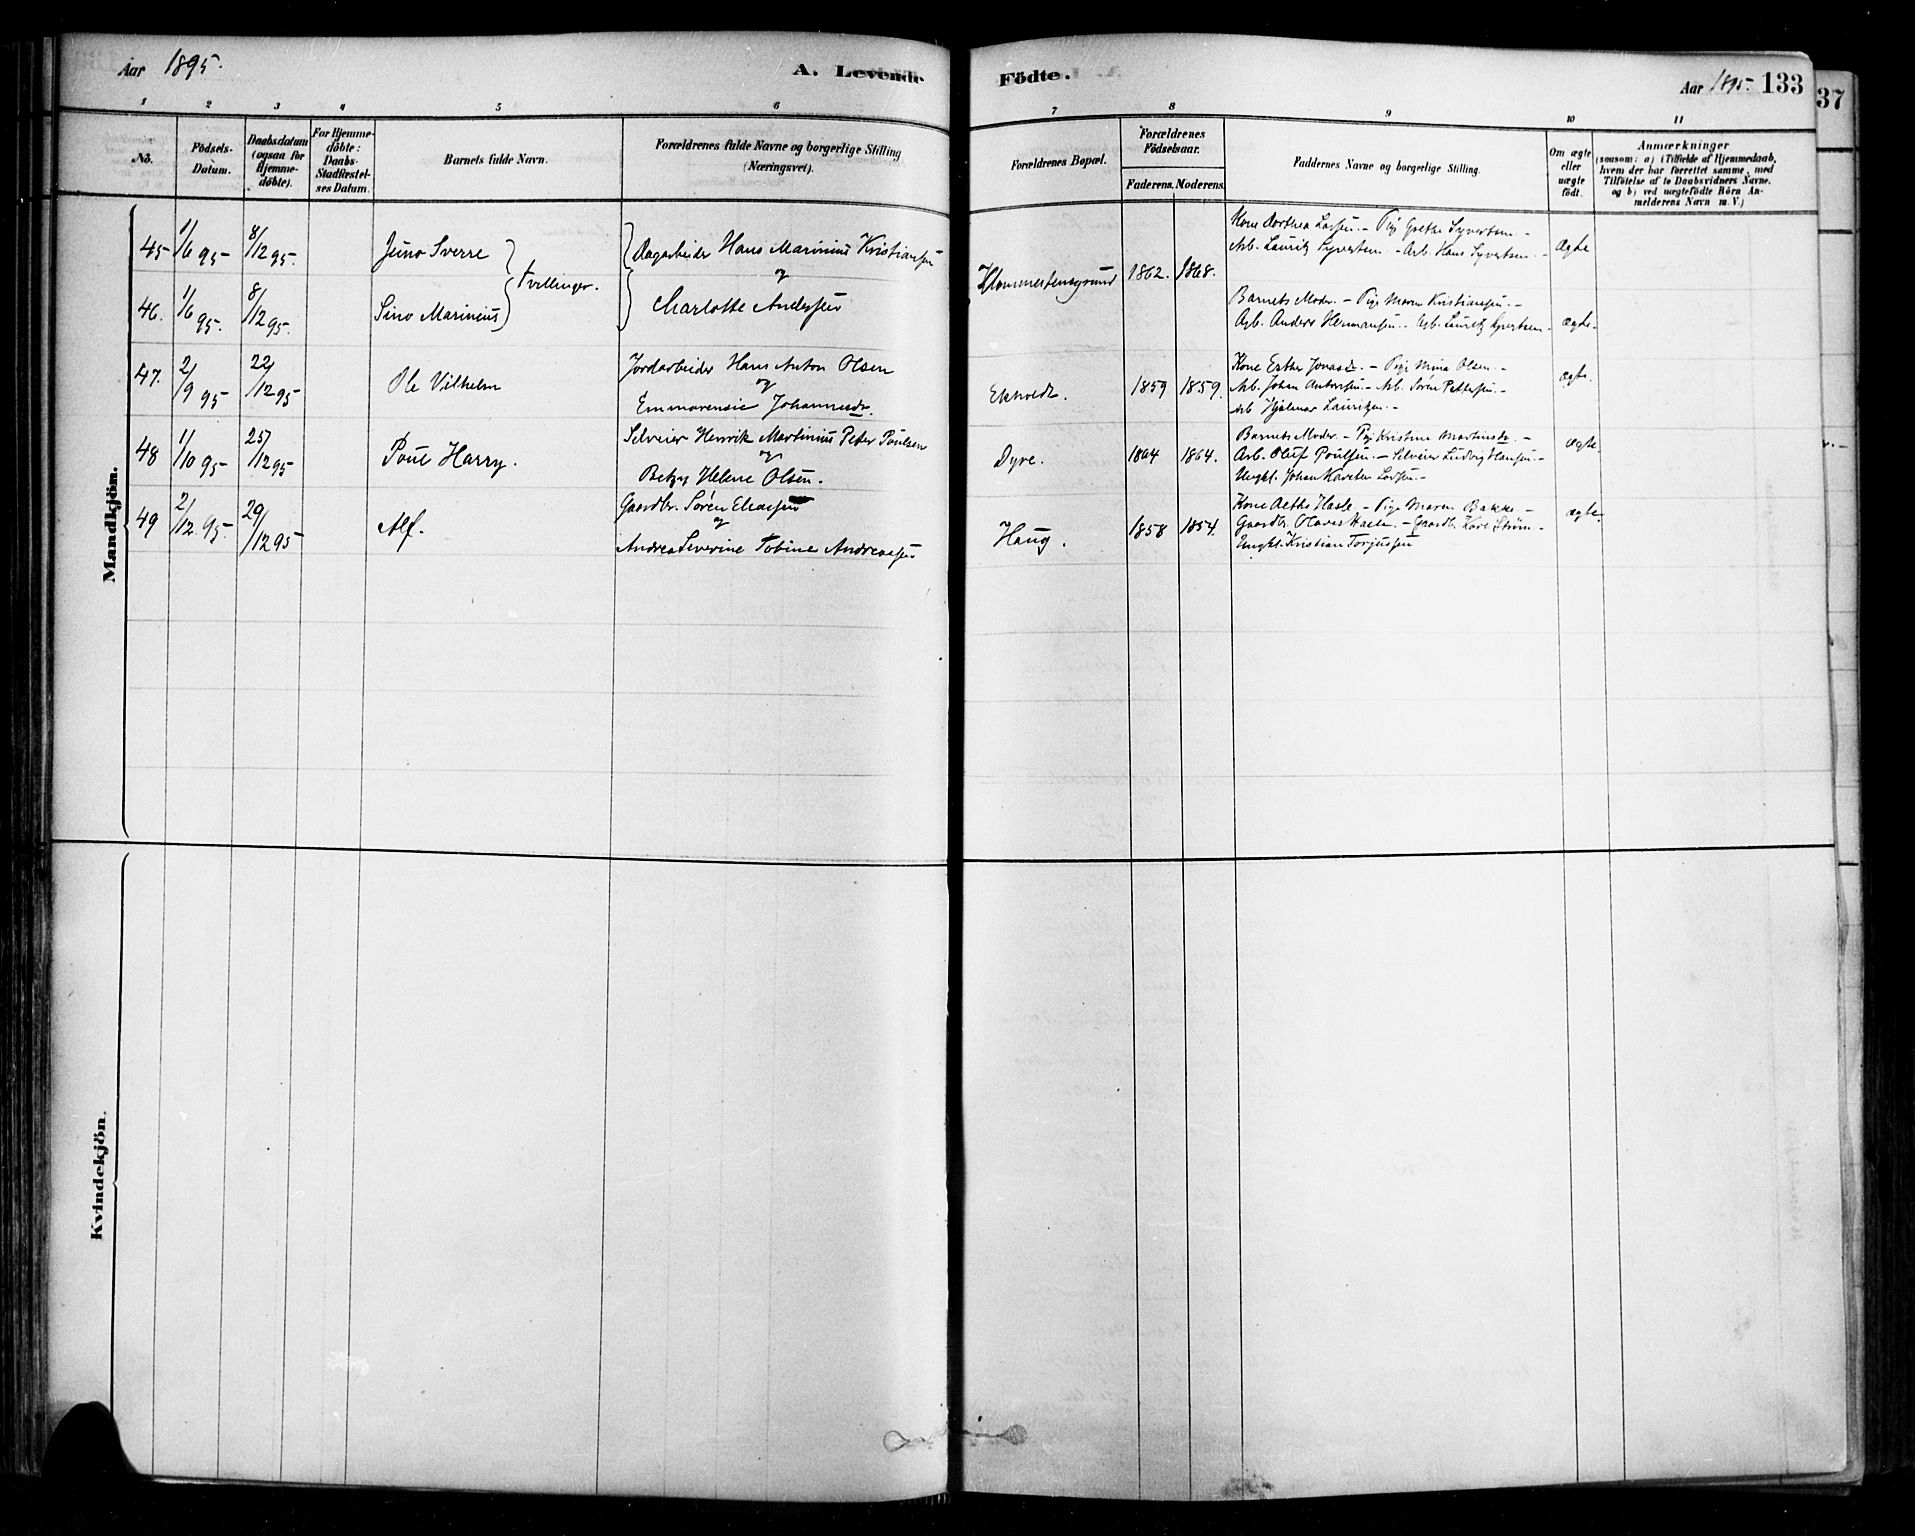 Aar 1895.
A. Levende Födte.
Aar 1895. 133
37
1 2 3 4 5 6 7 8 9 10 11
No.
Födsels-
Datum.
Daabsdatum
(ogsaa for
Hjemme-
döbte).
For Hjemme-
döbte:
Daabs-
Stadfæstel-
ses Datum.
Barnets fulde Navn.
Forældrenes fulde Navne og borgerlige Stilling
(Næringsvei).
Forældrenes Bopæl.
Forældrenes
Födselsaar.
Faderens. Moderens.
Faddernes Navne og borgerlige Stilling.
Om ægte
eller
uægte
født.
Anmærkninger
(saasom: a) i Tilfælde af Hjemmedaab,
hvem der har forrettet samme, med
Tilföielse af to Daabsvidners Navne,
og b) ved uægtefödte Börn An-
melderens Navn m. V.)
Mandkjön.
45 1/6 95 8/12 95. Juno Sverre
Tvillinger.
Dagarbeider Hans Marinius Kristiansen
og
Charlotte Andersen
Glommestensgrund 1862. 1868.
Kone Dorthea Larsen - Pige Grethe Syvertsen -
Arb. Lauritz Syvertsen - Arb. Hans Syvertsen -
Ægte
46. 1/6 95. 8/12 95. Sino Marinius
Barnets Moder - Pige Maren Kristiansen -
Arb. Anders Hermansen - Arb. Lauritz Syvertsen -
Ægte.
47. 2/9 95 22/12 95 Ole Vilhelm
Jordarbeider Hans Anton Olsen
og
Emmerensie Johannesdr.
Ekholdt. 1859 1859.
Kone Esther Jonasdr. - Pige Mina Olsen -
Arb. Johan Antonsen - Arb. Sören Pettersen -
Arb Hjalmar Lauritzen -
Ægte.
48 1/10 95 25/12 95 Poul Harry.
Selveier Henrik Martinius Peter Poulsen
og
Betzy Helene Olsen.
Dyre. 1864 1864.
Barnets Moder - Pige Kristine Martinsdr. -
Arb. Oluf Poulsen - Selveier Ludvig Hansen -
Ungkl. Johan Karsten Larsen -
Ægte.
49 2/12 95. 29/12 95 Alf.
Gaardbr. Sören Eliassen
og
Andrea Severine Tobine Andreassen
Haug. 1858 1854.
Kone Hasle - Pige Maren Bakke -
Gaardbr. Olaves Hasle - Gaardbr. Karl Ström -
Ungkl. Kristian Torjussen
Ægte.
Kvindekjön.